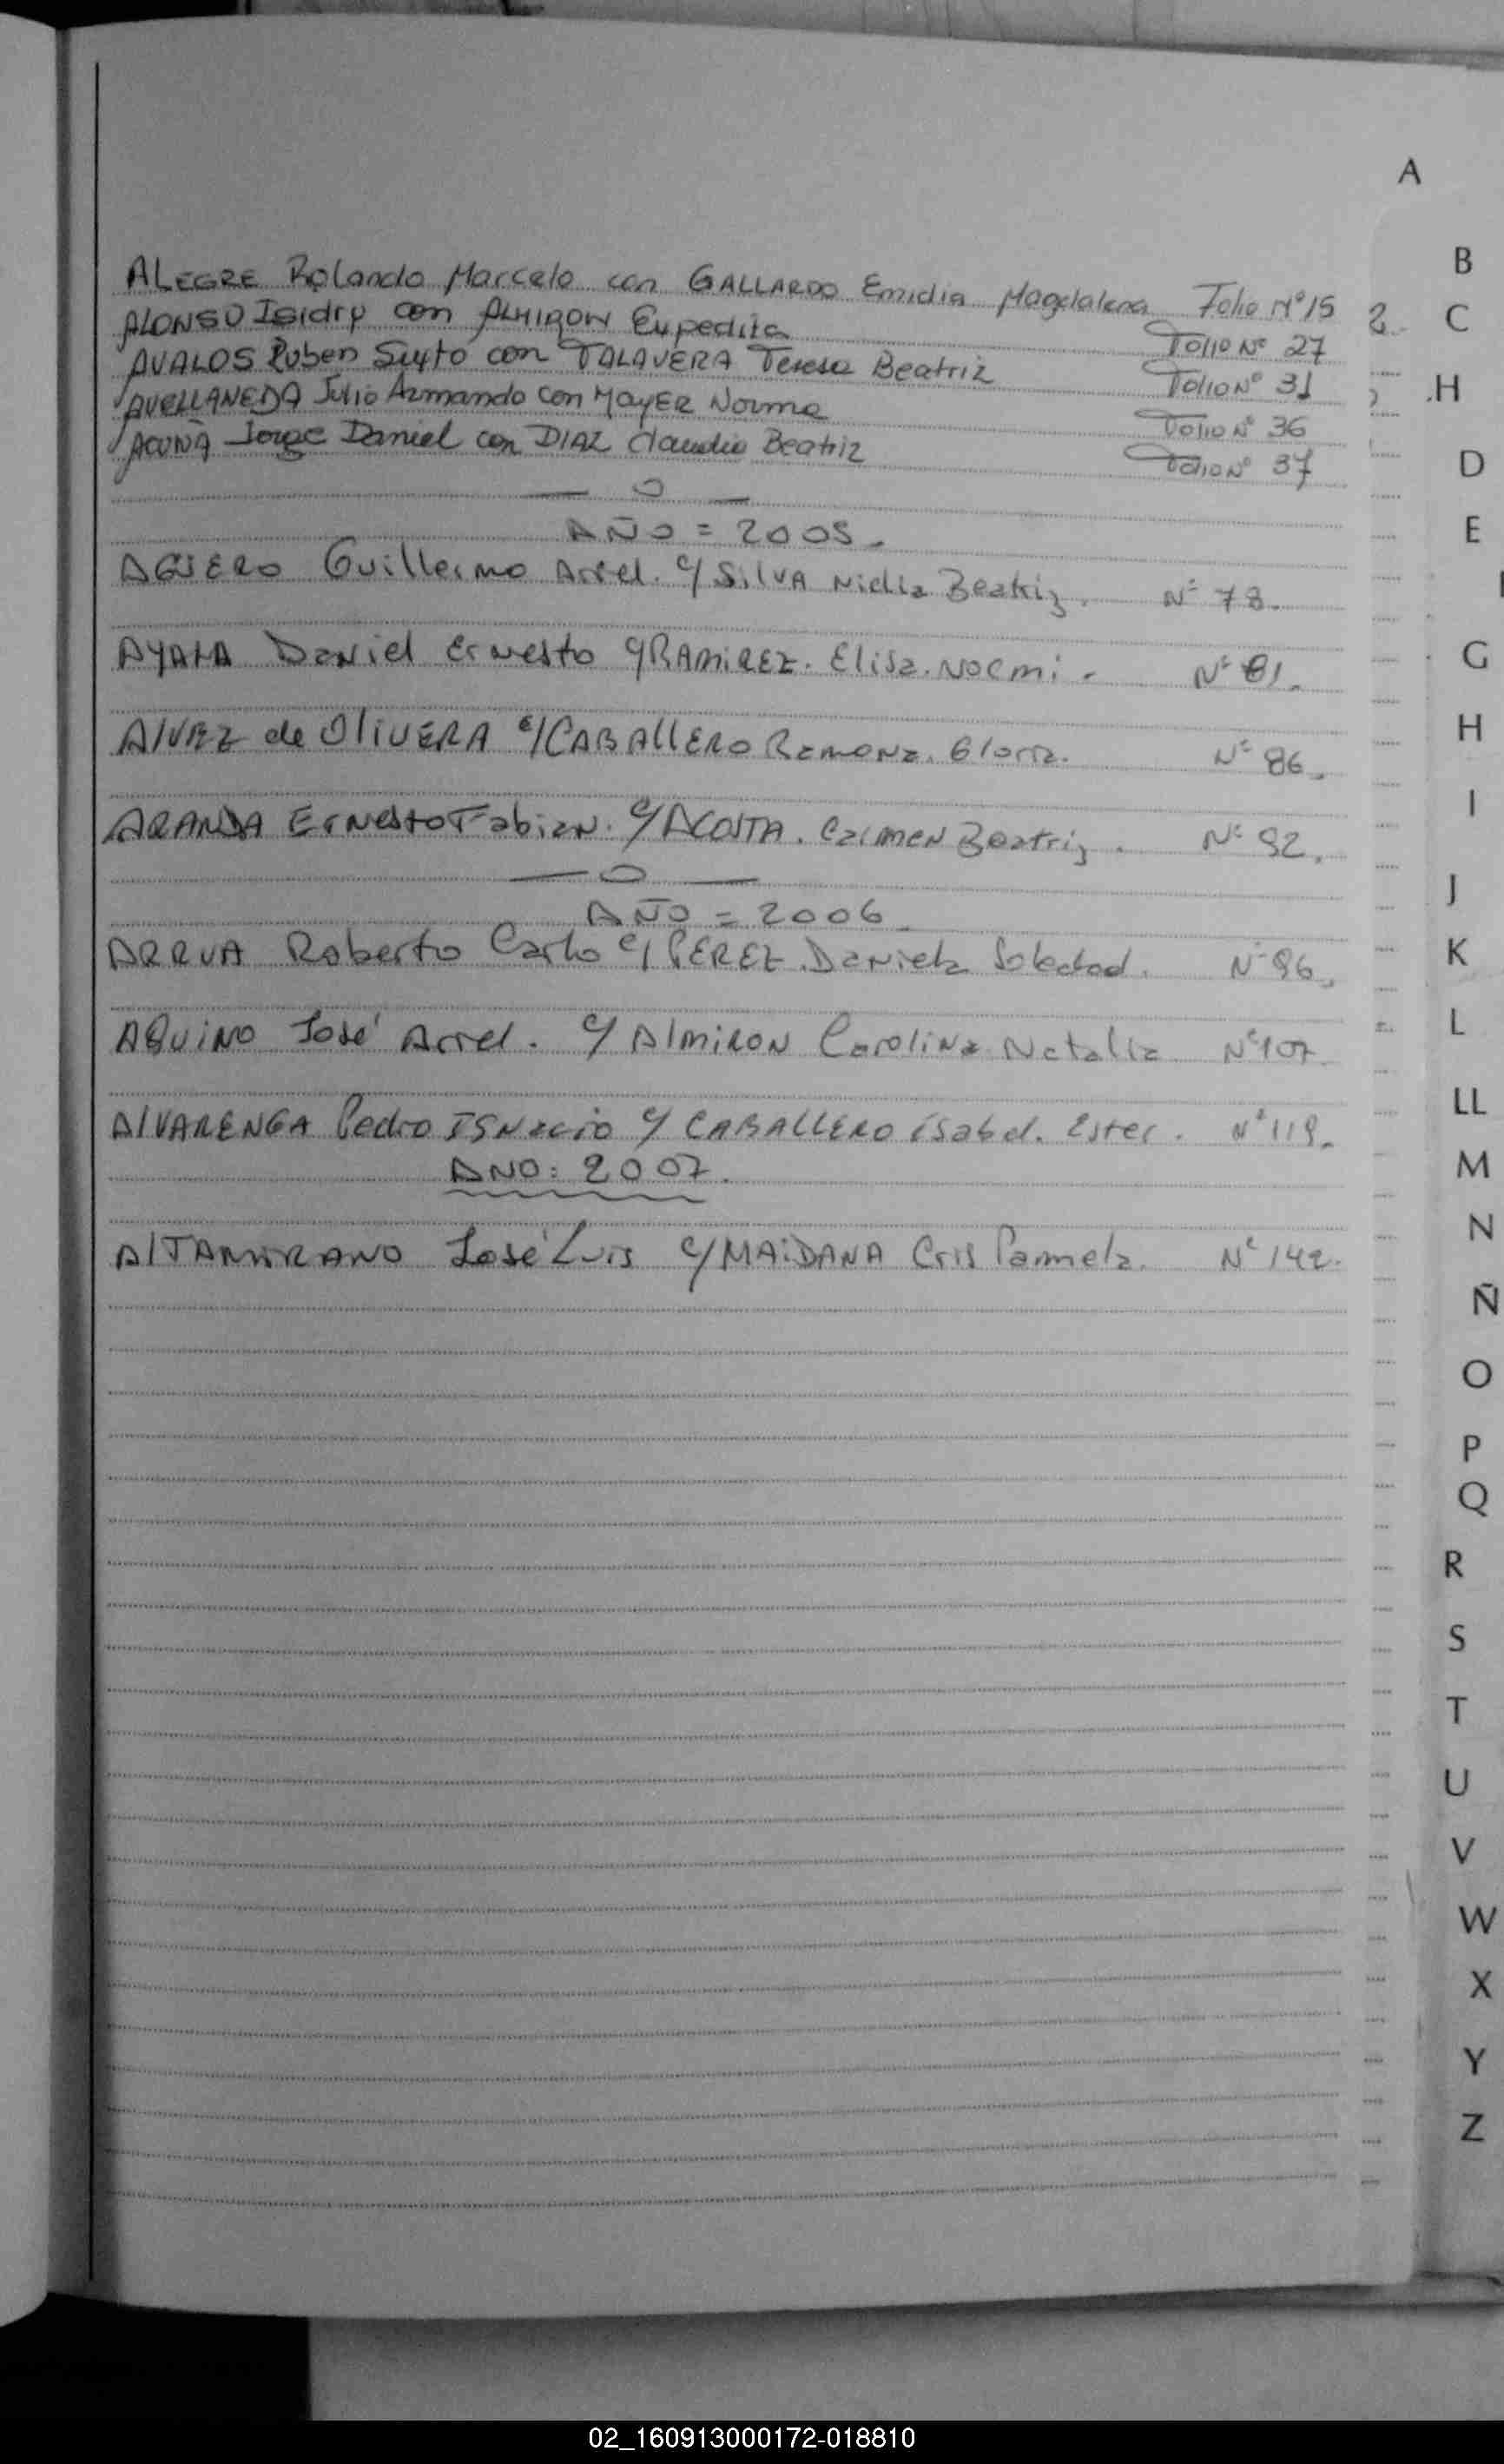 A
ALEGRE Rolando Marcelo con GALLARDO Emidia Magdalena Folio Nº 15
ALONSO Isidro con ALMIRON Expedita Folio Nº 27
AVALOS Ruben Sixto con TALAVERA Teresa Beatriz Folio Nº 31
AVELLANEDA Julio Armando con MAYER Norma Folio Nº 36
ACUÑA Jorge Daniel con DIAZ Claudia Beatriz Folio Nº 37
— O —
AÑO = 2005.
AGÜERO Guillermo Ariel. c/ SILVA Nidia Beatriz. Nº 78.
AYALA Daniel Ernesto c/ RAMIREZ. Elisa. Noemi. Nº 81.
ALVEZ de OLIVERA c/ CABALLERO Ramona. Gloria. Nº 86.
ARANDA Ernesto Fabian. c/ ACOSTA. Carmen Beatriz. Nº 92.
— O —
AÑO = 2006
ARRUA Roberto Carlo c/ PEREZ. Daniela Soledad. Nº 96.
AQUINO José Ariel. c/ ALMIRON Carolina Natalia Nº 107
ALVARENGA Pedro ISNacio c/ CABALLERO isabel. Ester. Nº 119.
ANO: 2007.
ALTAMIRANO José Luis c/ MAIDANA Cris Pamela. Nº 142.
B
C
H
D
E
G
H
I
J
K
L
LL
M
N
Ñ
O
P
Q
R
S
T
U
V
W
X
Y
Z
02_160913000172-018810